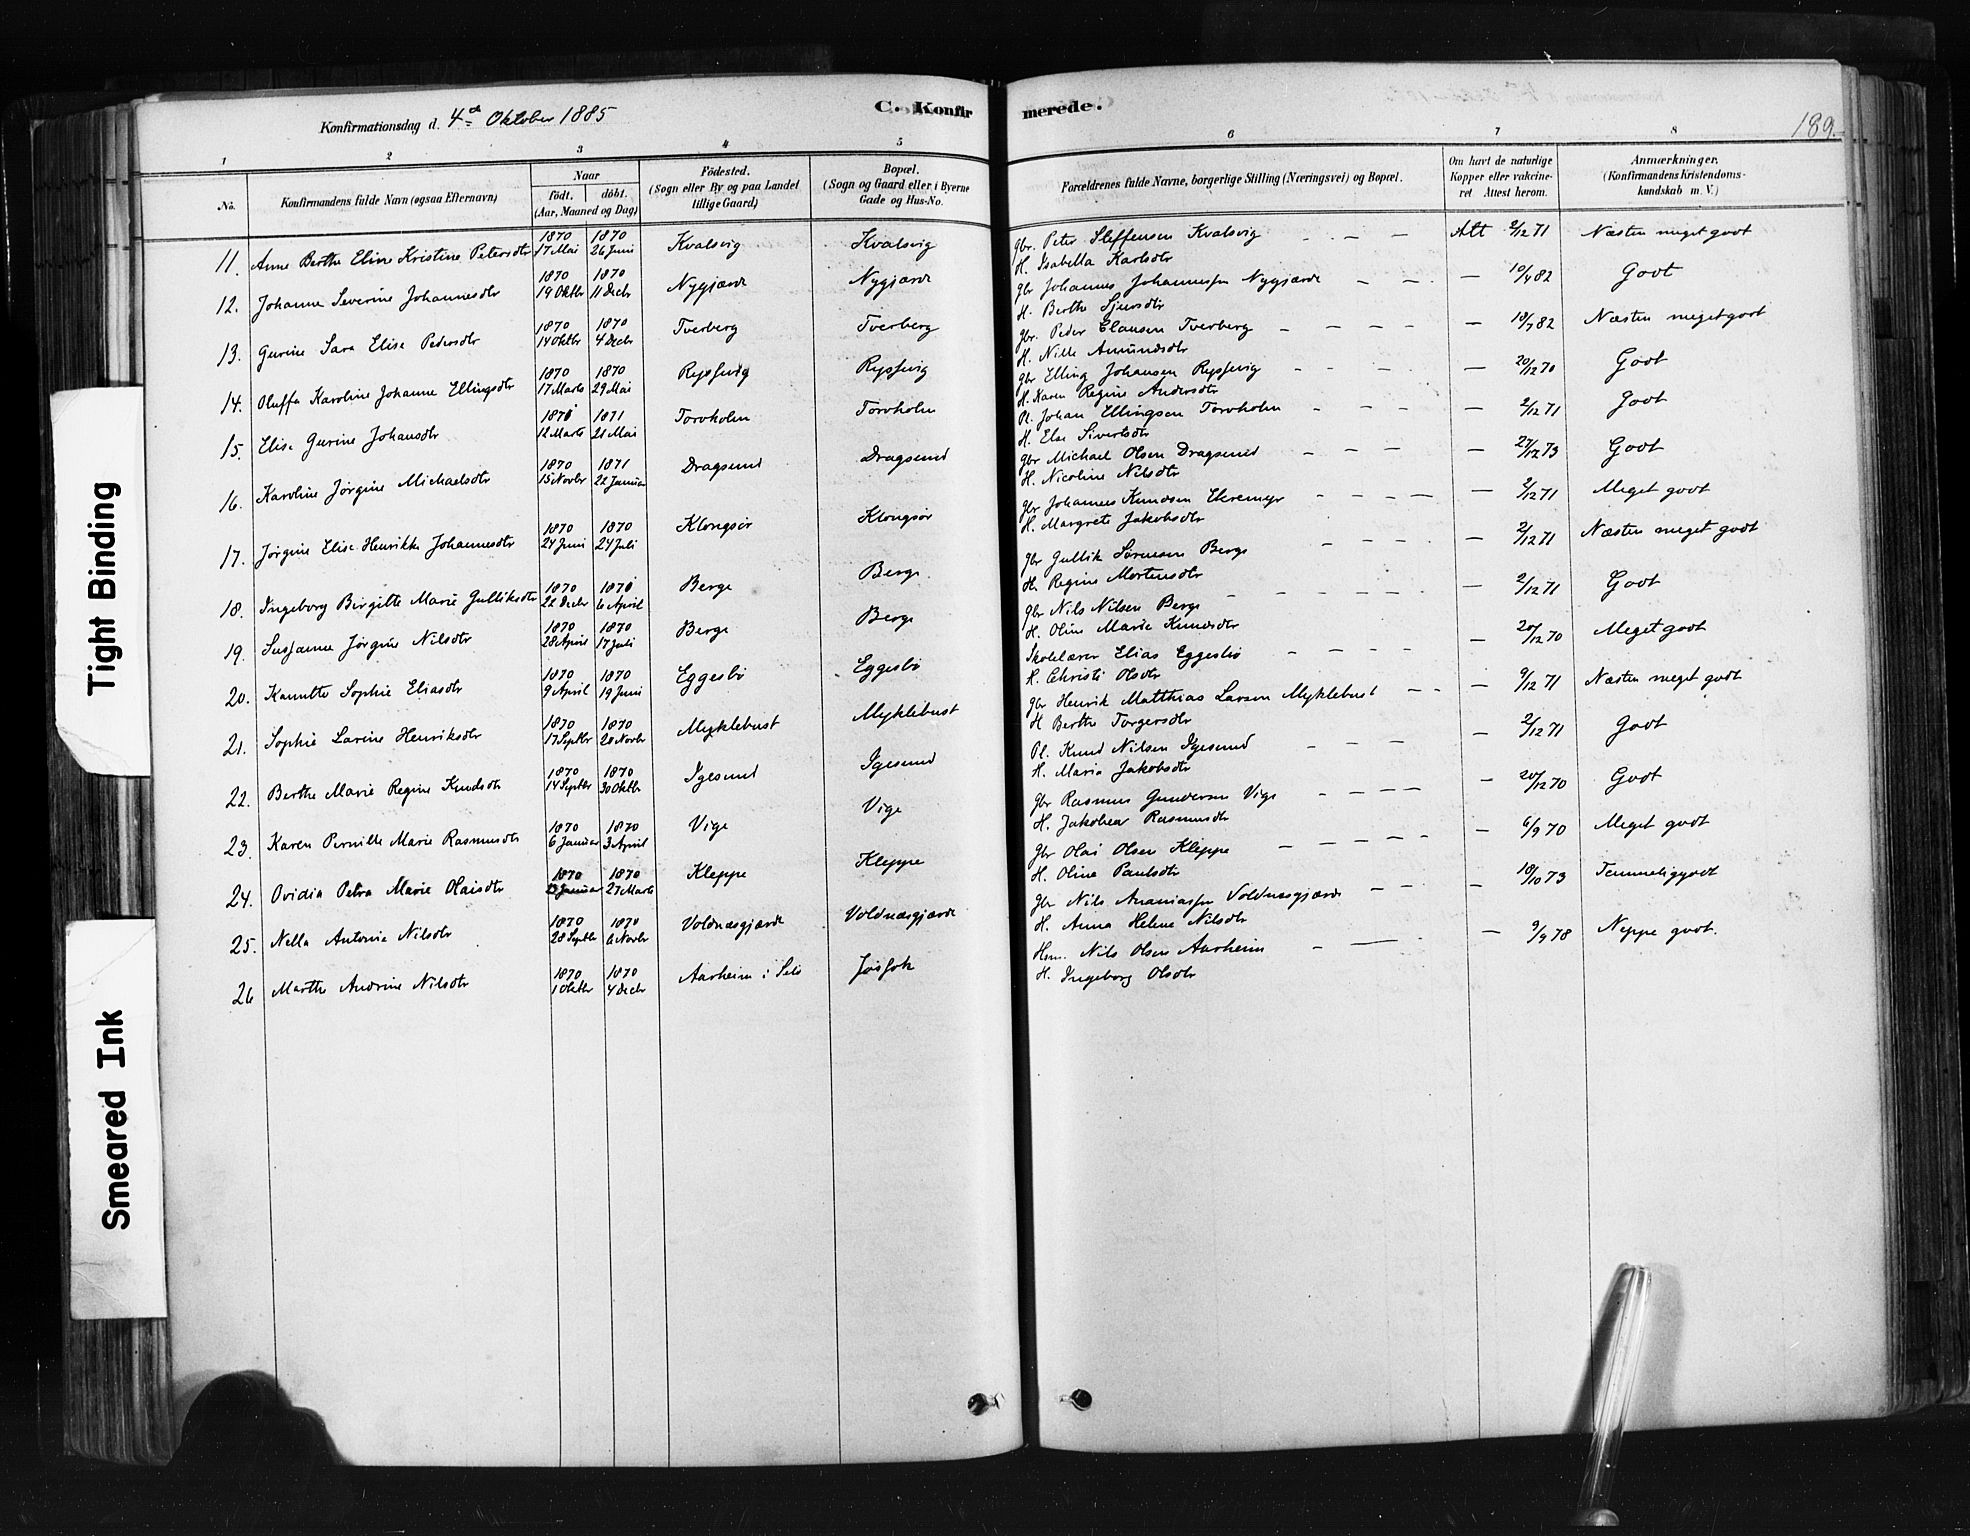 Konfirmationsdag d. 4de Oktober 1885
C. Konfirmerede.
189.
1 2 3 4 5 6 7 8
No. Konfirmandens fulde Navn (ogsaa Efternavn) Naar født, døbt. (Aar, Maaned og Dag) Fødested. (Sogn eller By og paa Landet tillige Gaard) Bopæl. (Sogn og Gaard eller i Byerne Gade og Hus-No. Forældrenes fulde Navne, borgerlige Stilling (Næringsvei) og Bopæl. Om havt de naturlige Kopper eller vakcineret Attest herom. Anmærkninger. (Konfirmandens Kristendomskundskab m. V.)
11. Anne Berthe Eline Kristine Petersdtr 1870 17 Mai 1870 26 Juni Kvalsvig Kvalsvig gbr. Peter Steffensen Kvalsvig Att 2/12 71 Næsten meget godt
H. Isabella Karlsdtr
12. Johanne Severine Johannesdtr 1870 19 Oktbr 1870 11 Decbr Nygjærde Nygjærde gbr Johannes Johannessen Nygjærde — 10/4 82 Godt
H. Berthe Sjursdtr
13. Gurine Sara Elise Pedersdtr 1870 14 Oktbr 1870 4 Decbr Tverberg Tverberg gbr. Peder Clausen Tverberg — 18/7 82 Næsten meget godt
H. Nille Amundsdtr
14. Oluffa Karoline Johanne Ellingsdtr 1870 17 Marts 1870 29 Mai Rypsvig Rypsvig gbr Elling Johansen Rypsvig — 20/12 70 Godt
H. Karen Regine Andersdtr
15. Elise Gurine Johansdtr 1871 12 Marts 1871 21 Mai Torvholm Torvholm Pl. Johan Ellingsen Torvholm — 2/12 71 Godt
H. Else Sivertsdtr
16. Karoline Jørgine Michaelsdtr 1870 15 Novbr 1871 22 Januar Dragsund Dragsund gbr Michael Olsen Dragsund — 27/12 73 Godt
H. Nicoline Nilsdtr
17. Jørgine Elise Henrikke Johannesdtr 1870 24 Juni 1870 24 Juli Klongsør Klongsør gbr Johannes Knudsen Ekremyr — 2/12 71 Meget godt
H. Margrete Jakobsdtr
18. Ingeborg Birgitte Marie Gulliksdtr 1870 22 Decbr 1871 6 April Berge Berge gbr Gullik Sørensen Berge — 2/12 71 Næsten meget godt
H. Regine Mortensdtr
19. Susanne Jørgine Nilsdtr 1870 28 April 1870 17 Juli Berge Berge gbr Nils Nilsen Berge — 2/12 71 Godt
H. Oline Marie Knudsdtr
20. Kanutte Sophie Eliasdtr 1870 9 April 1870 19 Juni Eggesbø Eggesbø Skolelærer Elias Eggesbø — 20/12 70 Meget godt
H. Christi Olsdtr
21. Sophie Larine Henriksdtr 1870 17 Septbr 1870 20 Novbr Myklebust Myklebust gbr Henrik Matthias Larsen Myklebust — 9/12 71 Næsten meget godt
H Berthe Torgersdtr
22. Berthe Marie Regine Knudsdtr 1870 14 Septbr 1870 30 Oktbr Igesund Igesund Pl. Knud Nilsen Igesund — 2/12 71 Godt
H. Maria Jakobsdtr
23. Karen Pernille Marie Rasmusdtr 1870 6 Januar 1870 3 April Vige Vige gbr Rasmus Gundersen Vige — 20/12 70 Godt
H. Jakobea Rasmusdtr
24. Ovidia Petra Marie Olaisdtr 1870 Januar 1870 27 Marts Kleppe Kleppe gbr Olai Olsen Kleppe — 6/9 70 Meget godt
H. Oline Paulsdtr
25. Nella Antonie Nilsdtr 1870 28 Septbr 1870 6 Novbr Voldnæsgjærde Voldnæsgjærde gbr Nils Ananiassen Voldnæsgjærde — 18/10 73 Temmelig godt
H. Anna Helene Nilsdtr
26 Marthe Andrine Nilsdtr 1870 1 Oktbr 1870 4 Decbr Aarheim i Selø Jøsok Hsm. Nils Olsen Aarheim — 9/9 78 Neppe godt.
H. Ingeborg Olsdtr
Tight Binding
Smeared Ink